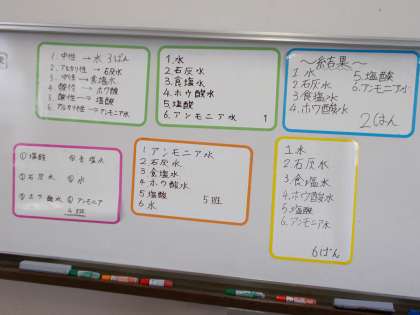 1. 中性 → 水 3ぱん
2. アルカリ性 → 石灰水
3. 中性 → 食塩水
4. 酸性 → ホウ酸
5. 酸性 → 塩酸
6. アルカリ性 → アンモニア水
1. 水
2. 石灰水
3. 食塩水
4. ホウ酸水
5. 塩酸
6. アンモニア水 1
〜結果〜
1. 水
2. 石灰水
3. 食塩水
4. ホウ酸水
5. 塩酸
6. アンモニア水
2はん
① 塩酸 ④ 食塩水
② 石灰水 ⑤ 水
③ ホウ酸水 ⑥ アンモニア
4班
1 アンモニア水
2 石灰水
3 食塩水
4 ホウ酸水
5 塩酸
6 水
5班
1. 水
2. 石灰水
3. 食塩水
4. ホウ酸水
5. 塩酸
6. アンモニア水
6ぱん